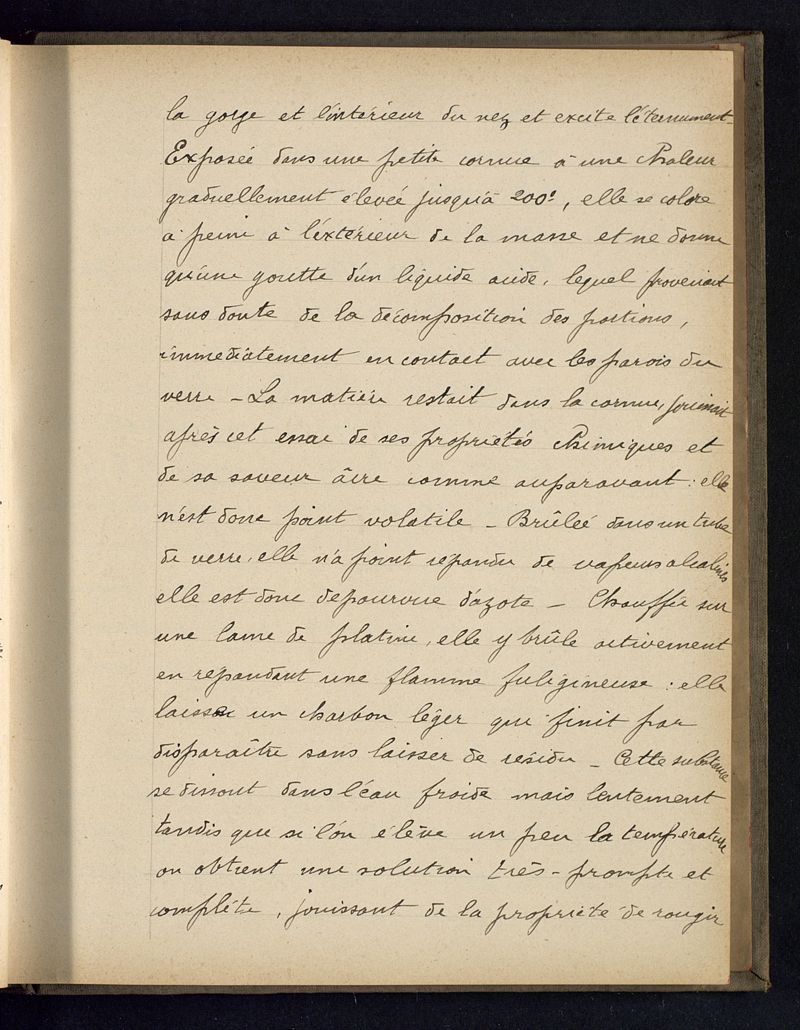 la gorge et l'intérieur du nez et excite l'éternument_
Exposée dans une petite cornue à une chaleur
graduellement élevée jusqu'à 200°, elle se colore
à peine à l'éxtérieur de la masse et ne donne
qu'une goutte d'un liquide acide, lequel provenait
sans doute de la décomposition des portions,
immediatement en contact avec les parois du
verre _ La matière restait dans la cornue, jouissait
après cet essai de ses propriétés chimiques et
de sa saveur âcre comme auparavant : elle
n'est donc point volatile _ Brûlée dans un tube
de verre, elle n'a point repandu de vapeurs alcalines
elle est donc depourvue d'azote _ Chauffée sur
une lame de platine, elle y brûle activement
en repandant une flamme fuligineuse : elle
laisse un charbon léger que finit par
disparaître sans laisser de résidu _ Cette substance
se dissout dans l'eau froide mais lentement
tandis que si l'on élève un peu la température
on obtient une solution très-prompte et
complète, jouissant de la propriété de rougir